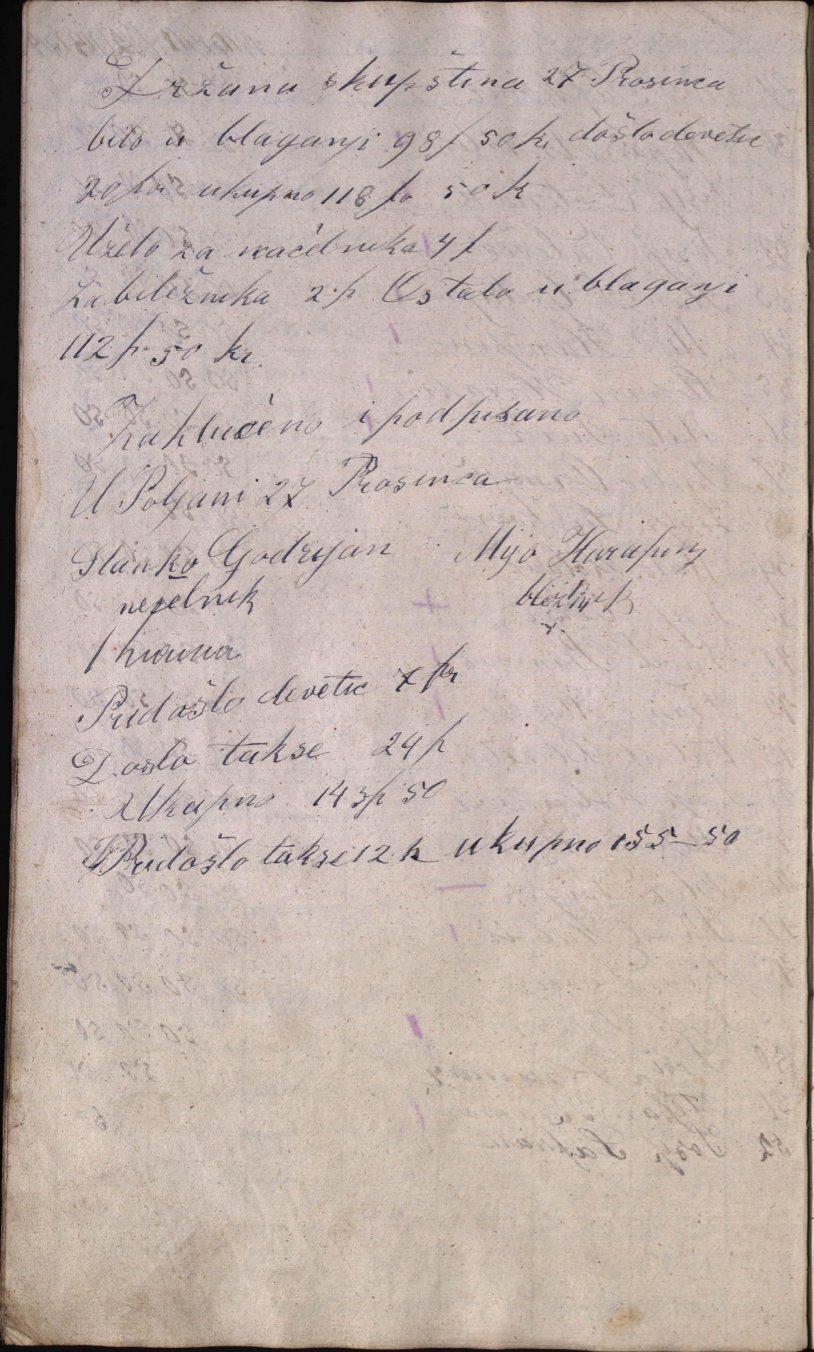 Držana skupština 27 Prosinca
bilo u blagajni 98f 50k, došlo devetic
20 for ukupno 118 fo 50k
Uzelo za načelnika 4f
za bilježnika 2 f Ostalo u blagajni
112 f 50 kr.
Zaključeno i podpisano
U Poljani 27 Prosinca
Stanko Godrijan Mijo Harapin
nečelnik bležnik
1 kruna
Pridošlo devetic 7 fr
Došlo takse 24 f
Ukupno 143 f 50
Pridošlo takse 12 k ukupno 155-50